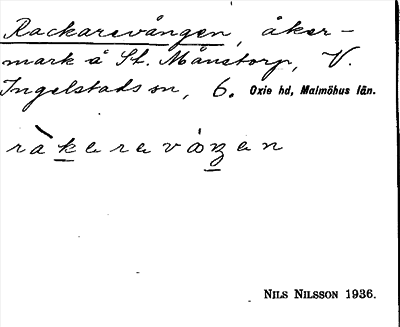 Rackarevången, åker-
mark å St. Månstorp, V.
Ingelstads sn, 6. Oxie hd, Malmöhus län.
NILS NILSSON 1936.